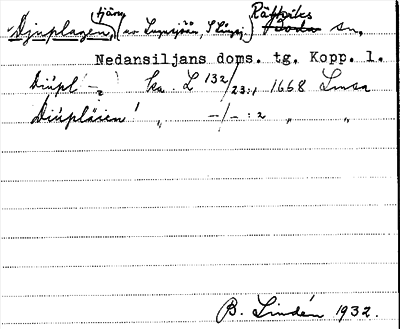 Djuplagen, (tjärn, av Lugnsjön, S Lugnsj.) Rättviks sn,
Nedansiljans doms. tg. Kopp. l.
Diúpl' ka. L 132/23:1 1668 Lmsa
Diúpläien! „ -/- : 2 „ „
B. Lindén 1932.